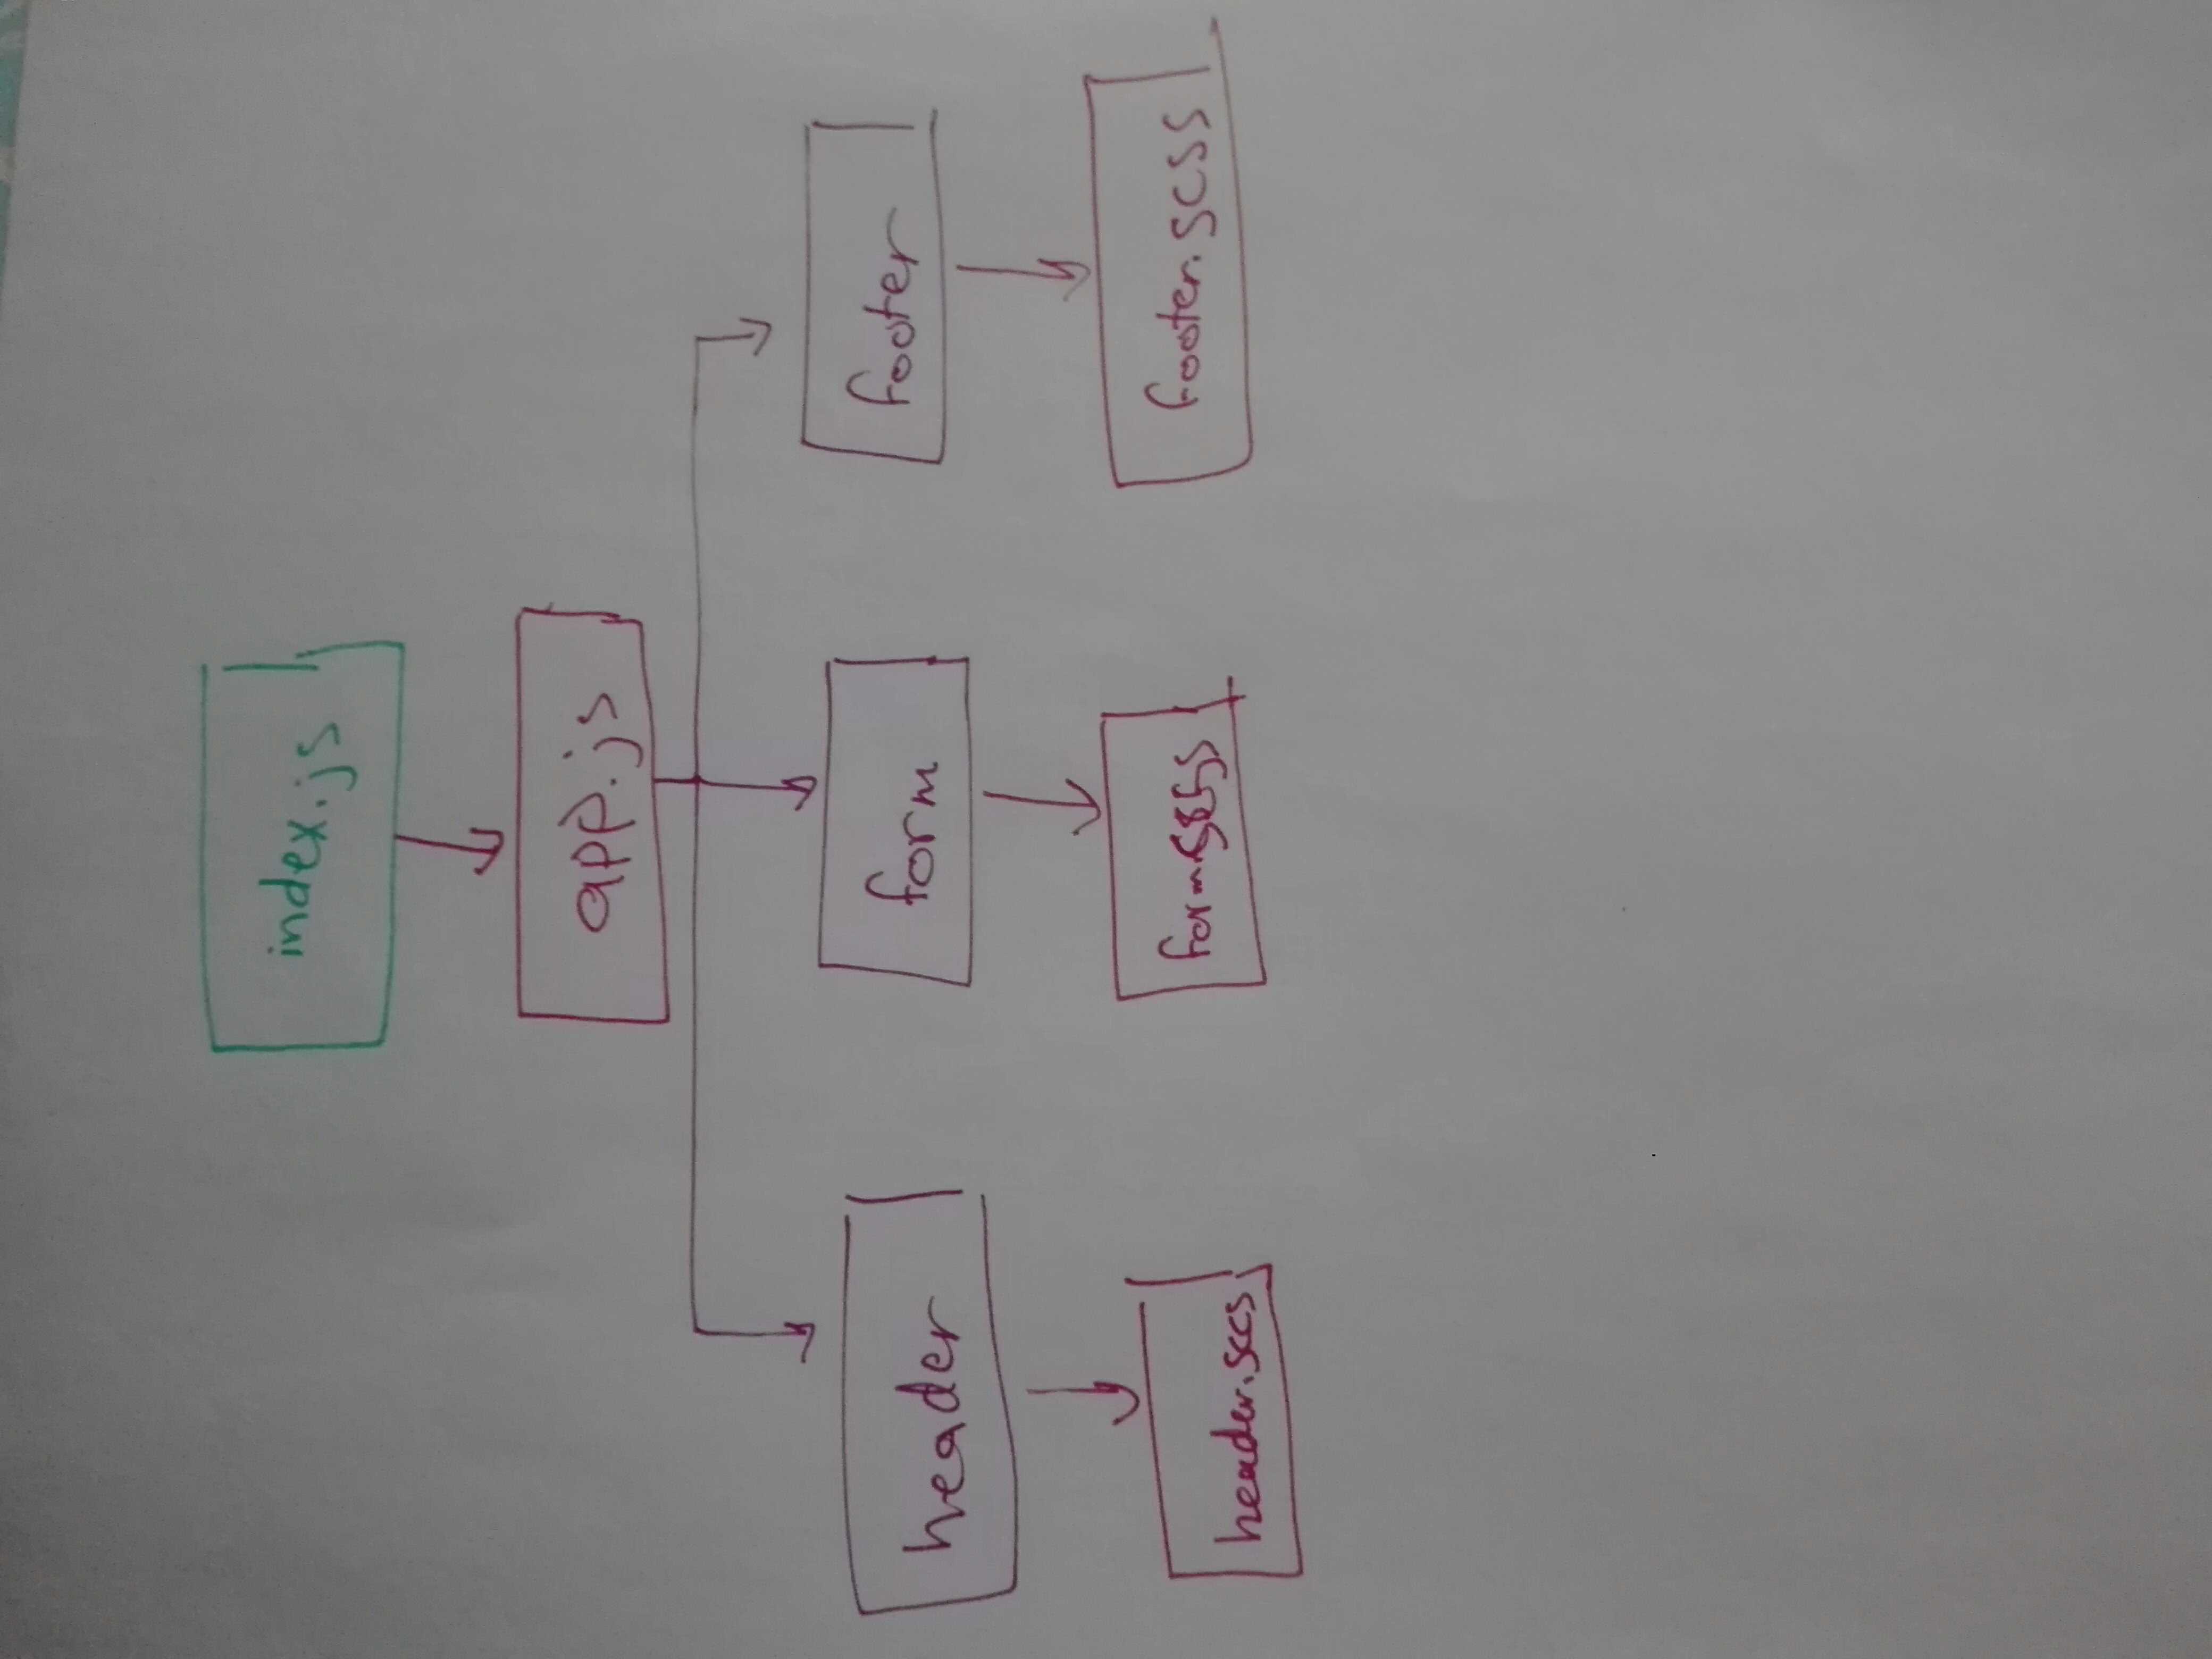 index.js
app.js
header
form
footer
header.sccs
form.scss
footer.scss